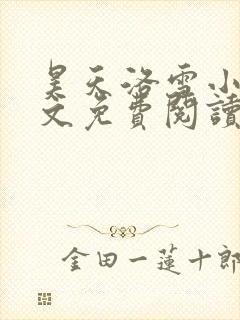 昊天洛雪小
文免費閱讀
金田一蓮十郎